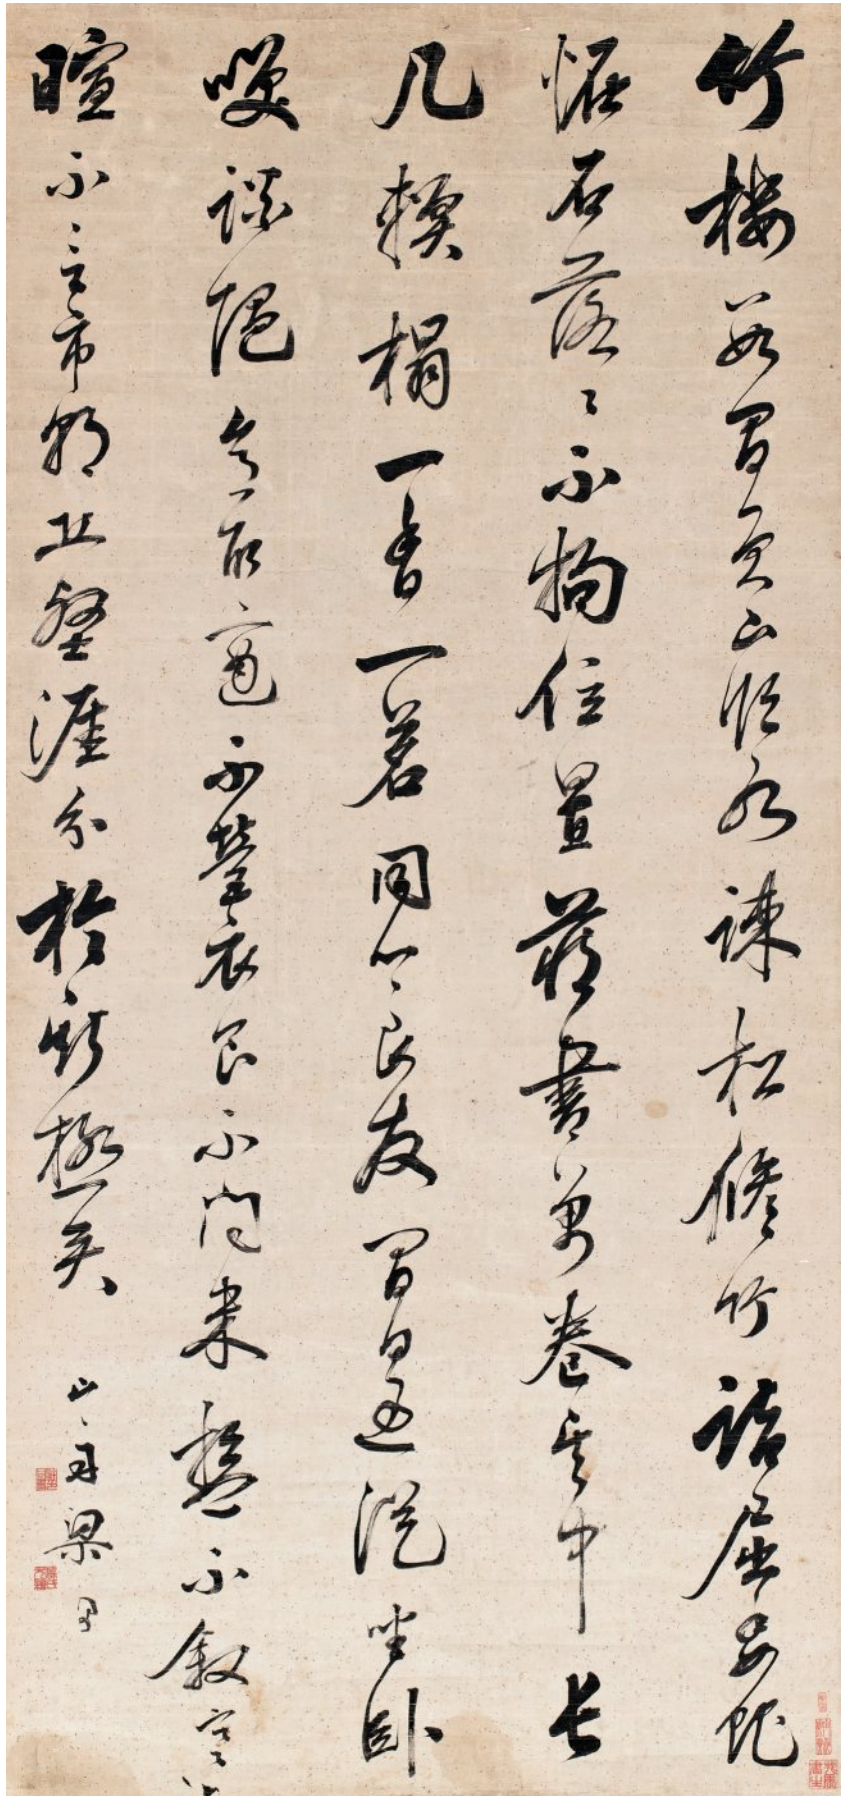 竹樓數間負山臨水疎松修竹詰屈委蛇
怪石落々不拘位置藏書萬卷其中長
几輭榻一香一茗同心良友閒日過從坐卧
咲談隨意所適不營衣食不問米鹽不叙寒
暄不言市朝丘壑涯分於斯極矣
山舟梁